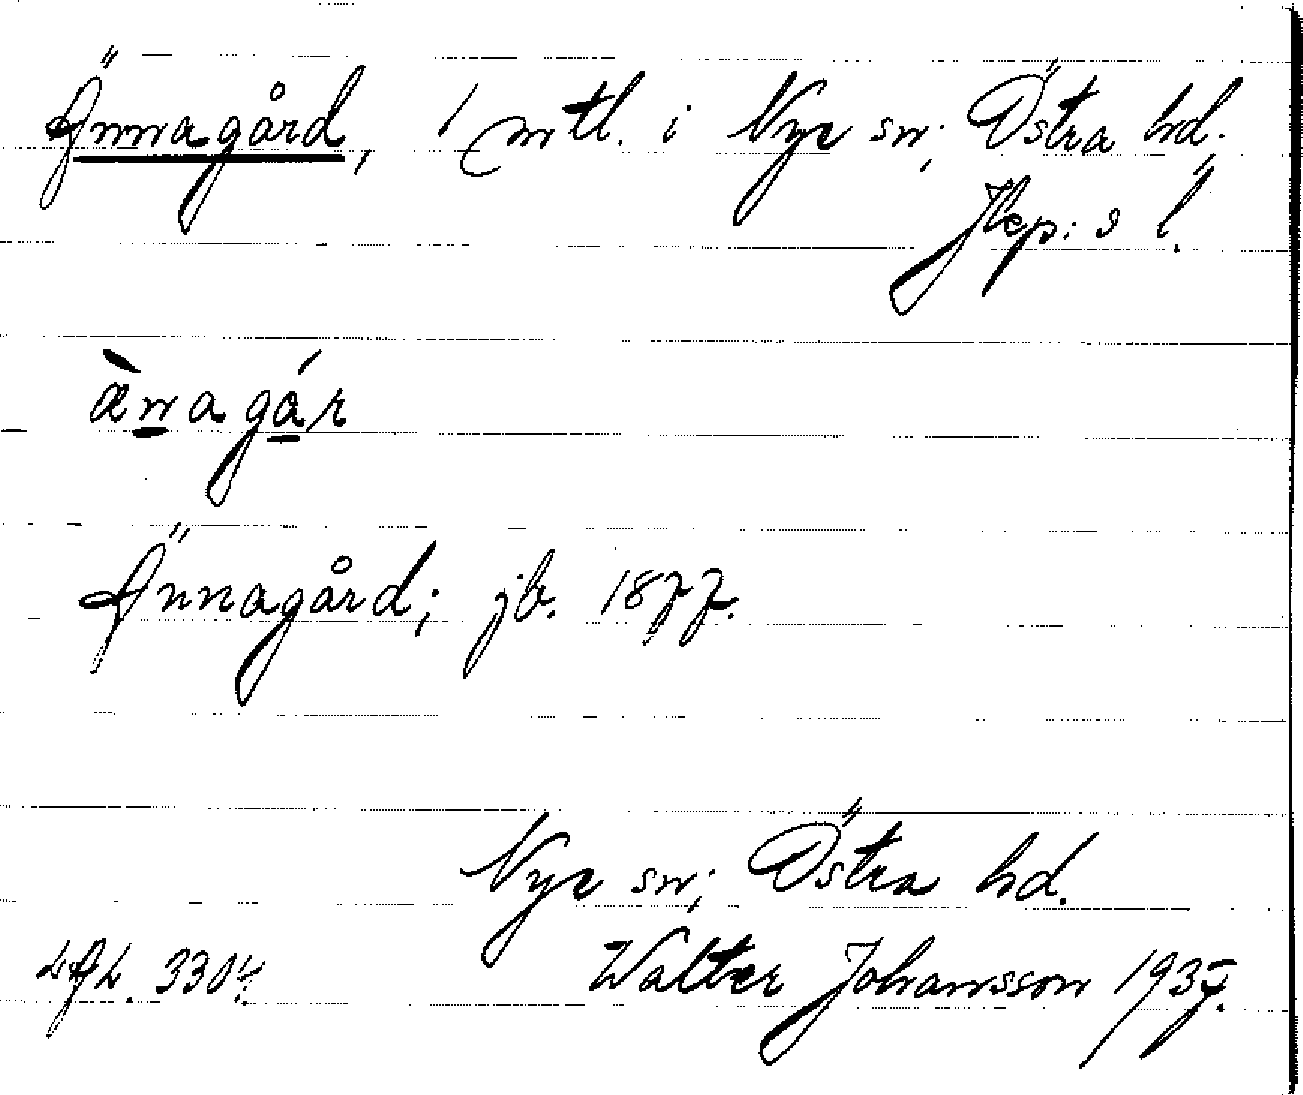 Ännagård, 1 mtl. i Nye sn; Östra hd.
Jkp:s l.
ä̀nagár
Ännagård; jb. 1877.
Nye sn; Östra hd.
Walter Johansson 1937.